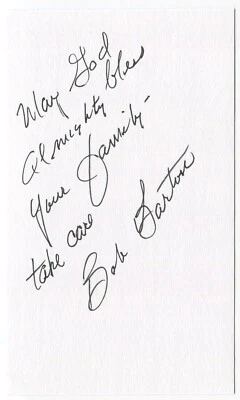 May God
Almighty bless
your family-
take care
Bob Barton